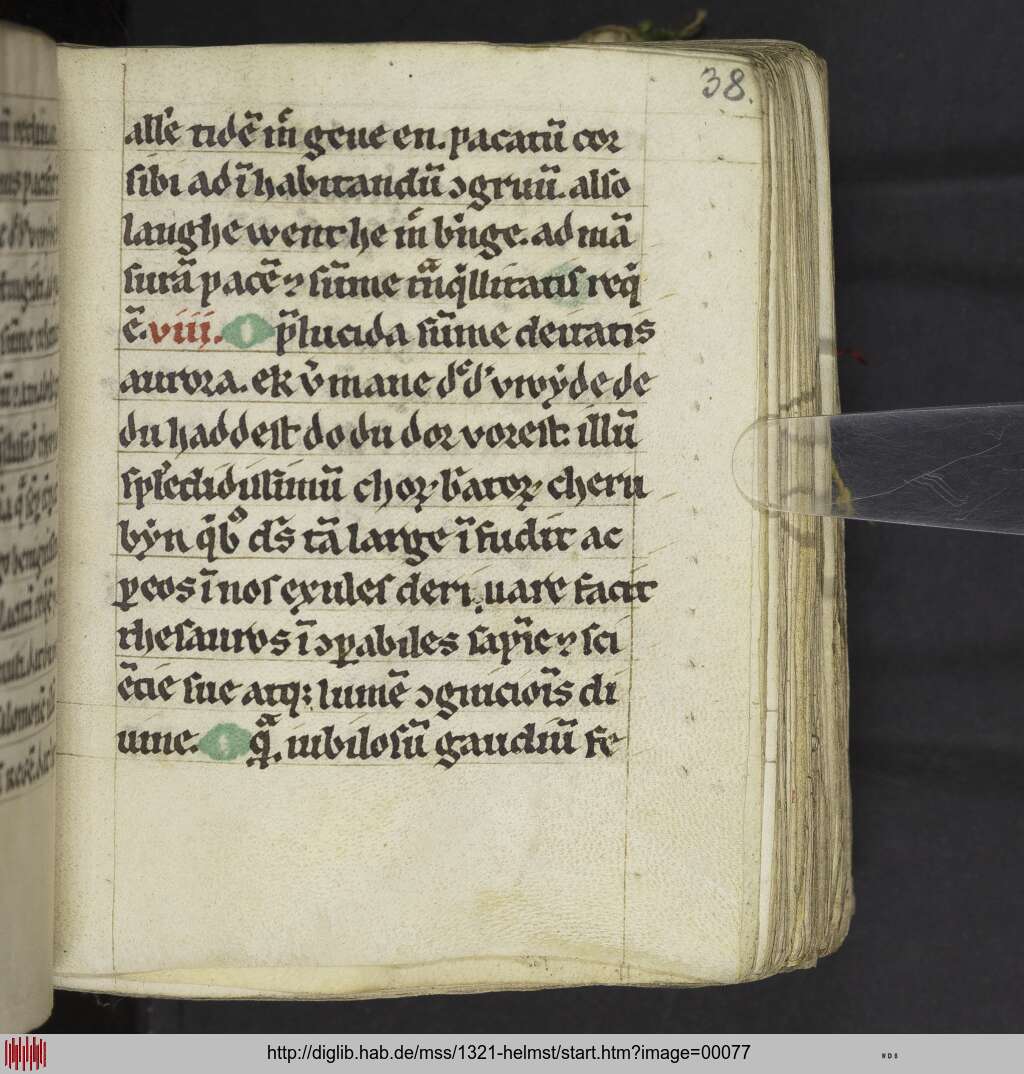 38.
all'e tidē m̄ geue en. pacatū cor
sibi ad īhabitandū ↄgruū. also
langhe went he m̄ b'nge. ad mā
surā pacē ⁊ sūme tͣnqͥllitatis reqͥ
ē. viii. O p̄lucida sūme deitatis
aurora. ek v̄mane dͤ dͬ vroẏde de
du haddest do du dor vorest: illū
sple̅didissimū choꝝ b̄atoꝝ cheru
bẏn qͥbꝰ ds̄ tā large īfudit ac
ꝑ eos ī nos exules deri,uare facit
thesauros īↄꝑabiles sapīe ⁊ sci
ētie sue atqꝫ lumē ↄgnicioīs di
uine. O qͣ. iubilosū gaudiū fe
http://diglib.hab.de/mss/1321-helmst/start.htm?image=00077